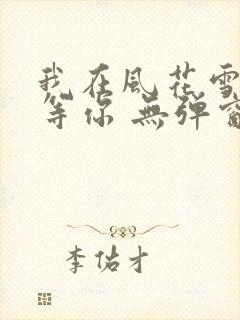 我在風花雪
等你 無彈窗
李佑才